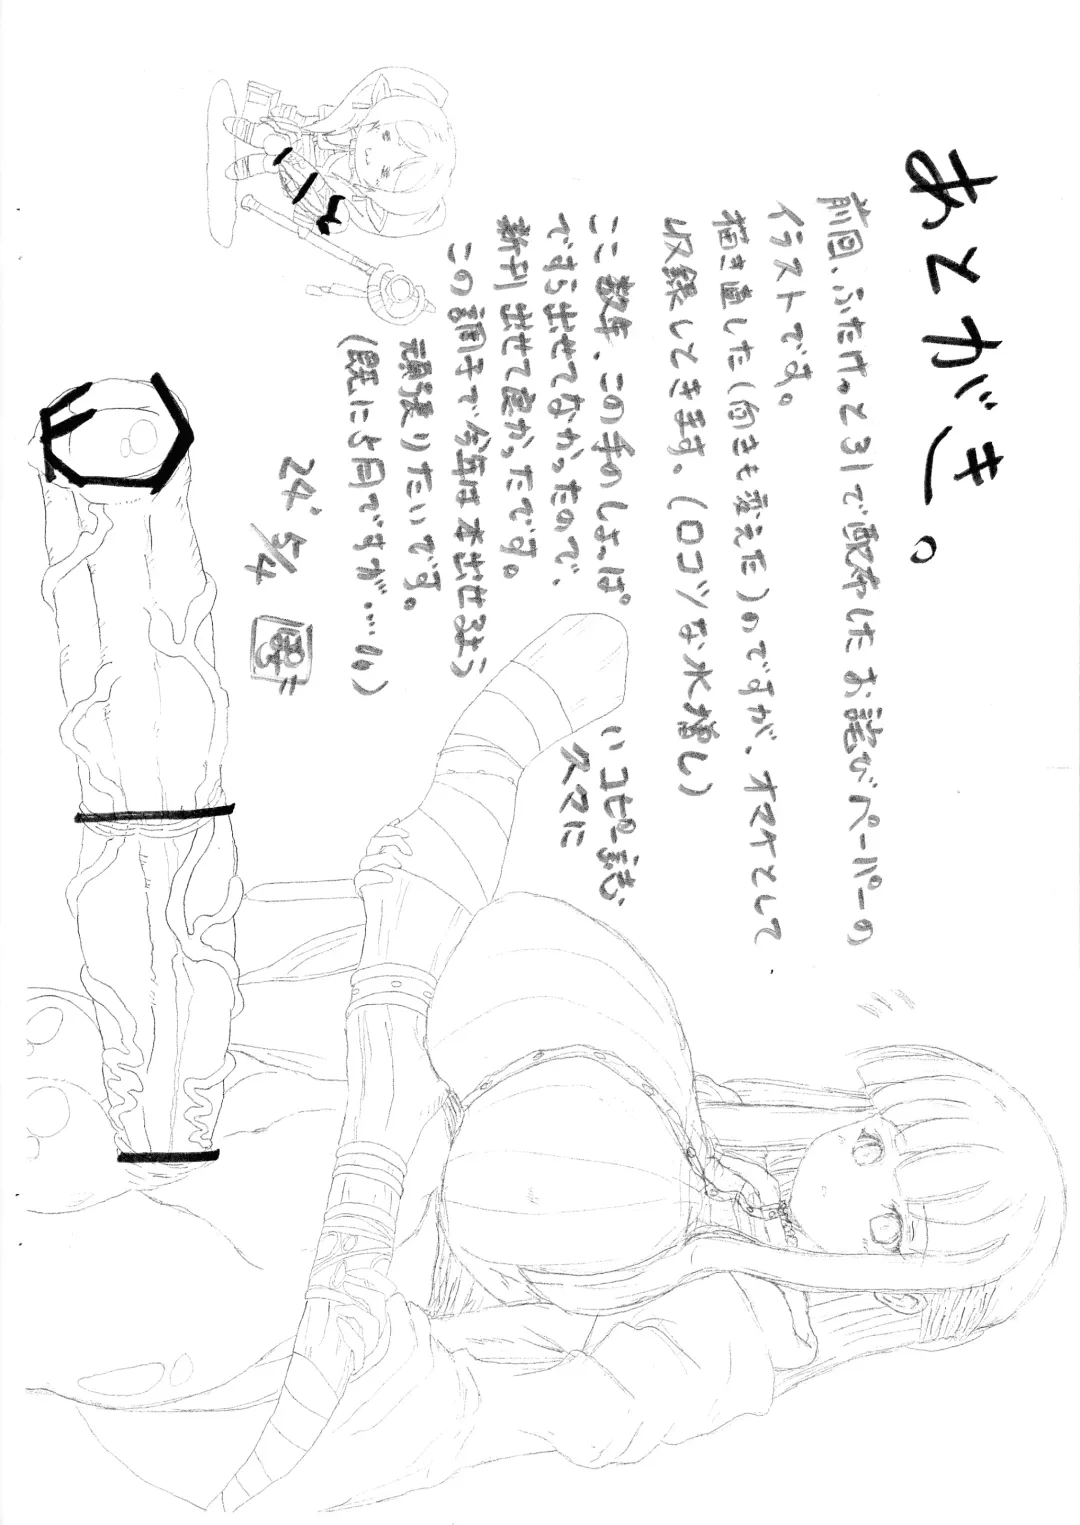 あとがき。
前回、ふたけっと31で配布したお詫びペーパーの
イラストです。
描き直した(向きも変えた)のですが、オマケとして
収録しときます。(ロコツな水増し)
ここ数年、この手のしょっぱ〜
いコピー誌
ですら出せてなかったので、
新刊出せて良かったです。
この調子で今年は本出せるよう
頑張りたいです。
(既に5月ですが……^^;)
24' 5/4